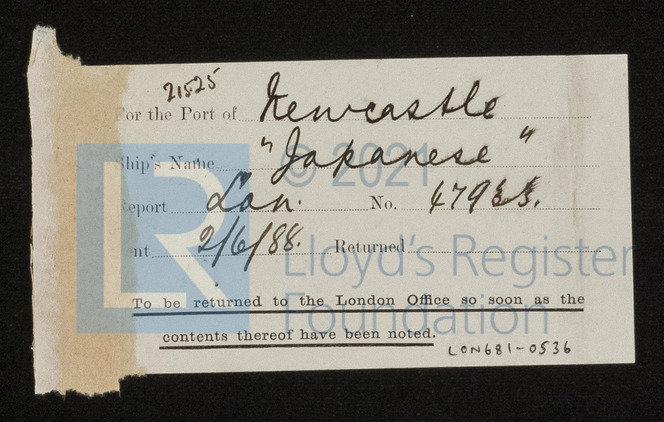 21525
For the Port of Newcastle
Ship's Name "Japanese"
Report Lon. No. 479
ent 2/6/88. Returned
To be returned to the London Office so soon as the
contents thereof have been noted.
LON681-0536
© 2021
Lloyd's Register
Foundation
LR